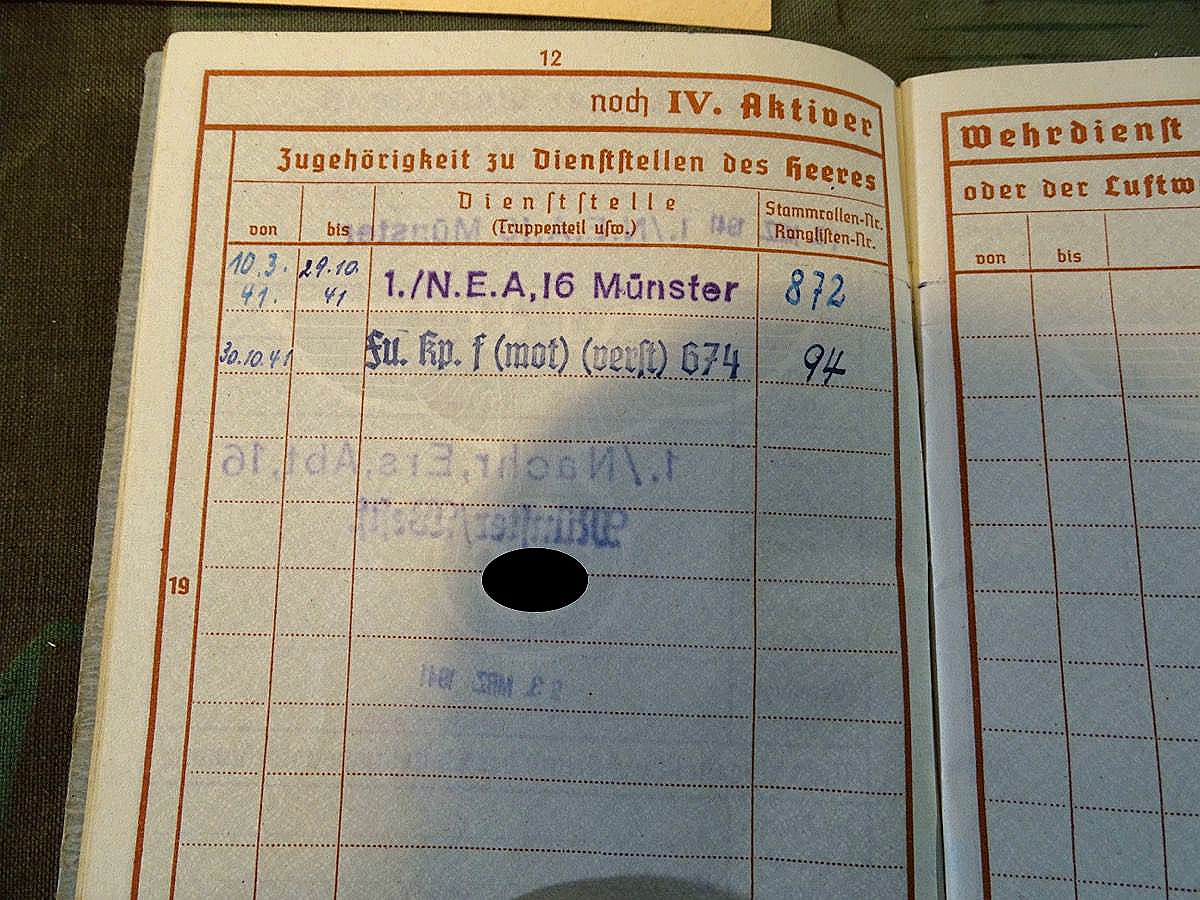 12
noch IV. Aktiver
Zugehörigkeit zu Dienststellen des Heeres
von
bis
Dienststelle
(Truppenteil usw.)
Stammrollen-Nr.
Ranglisten-Nr.
10.3. 41.
29.10. 41
1./N.E.A,16 Münster
872
30.10.41
Fu. Kp. f (mot) (verst) 674
94
1./Nachr,Ers,Abt,16,
19
23. MRZ. 1941
Wehrdienst
oder der Luftw
von
bis